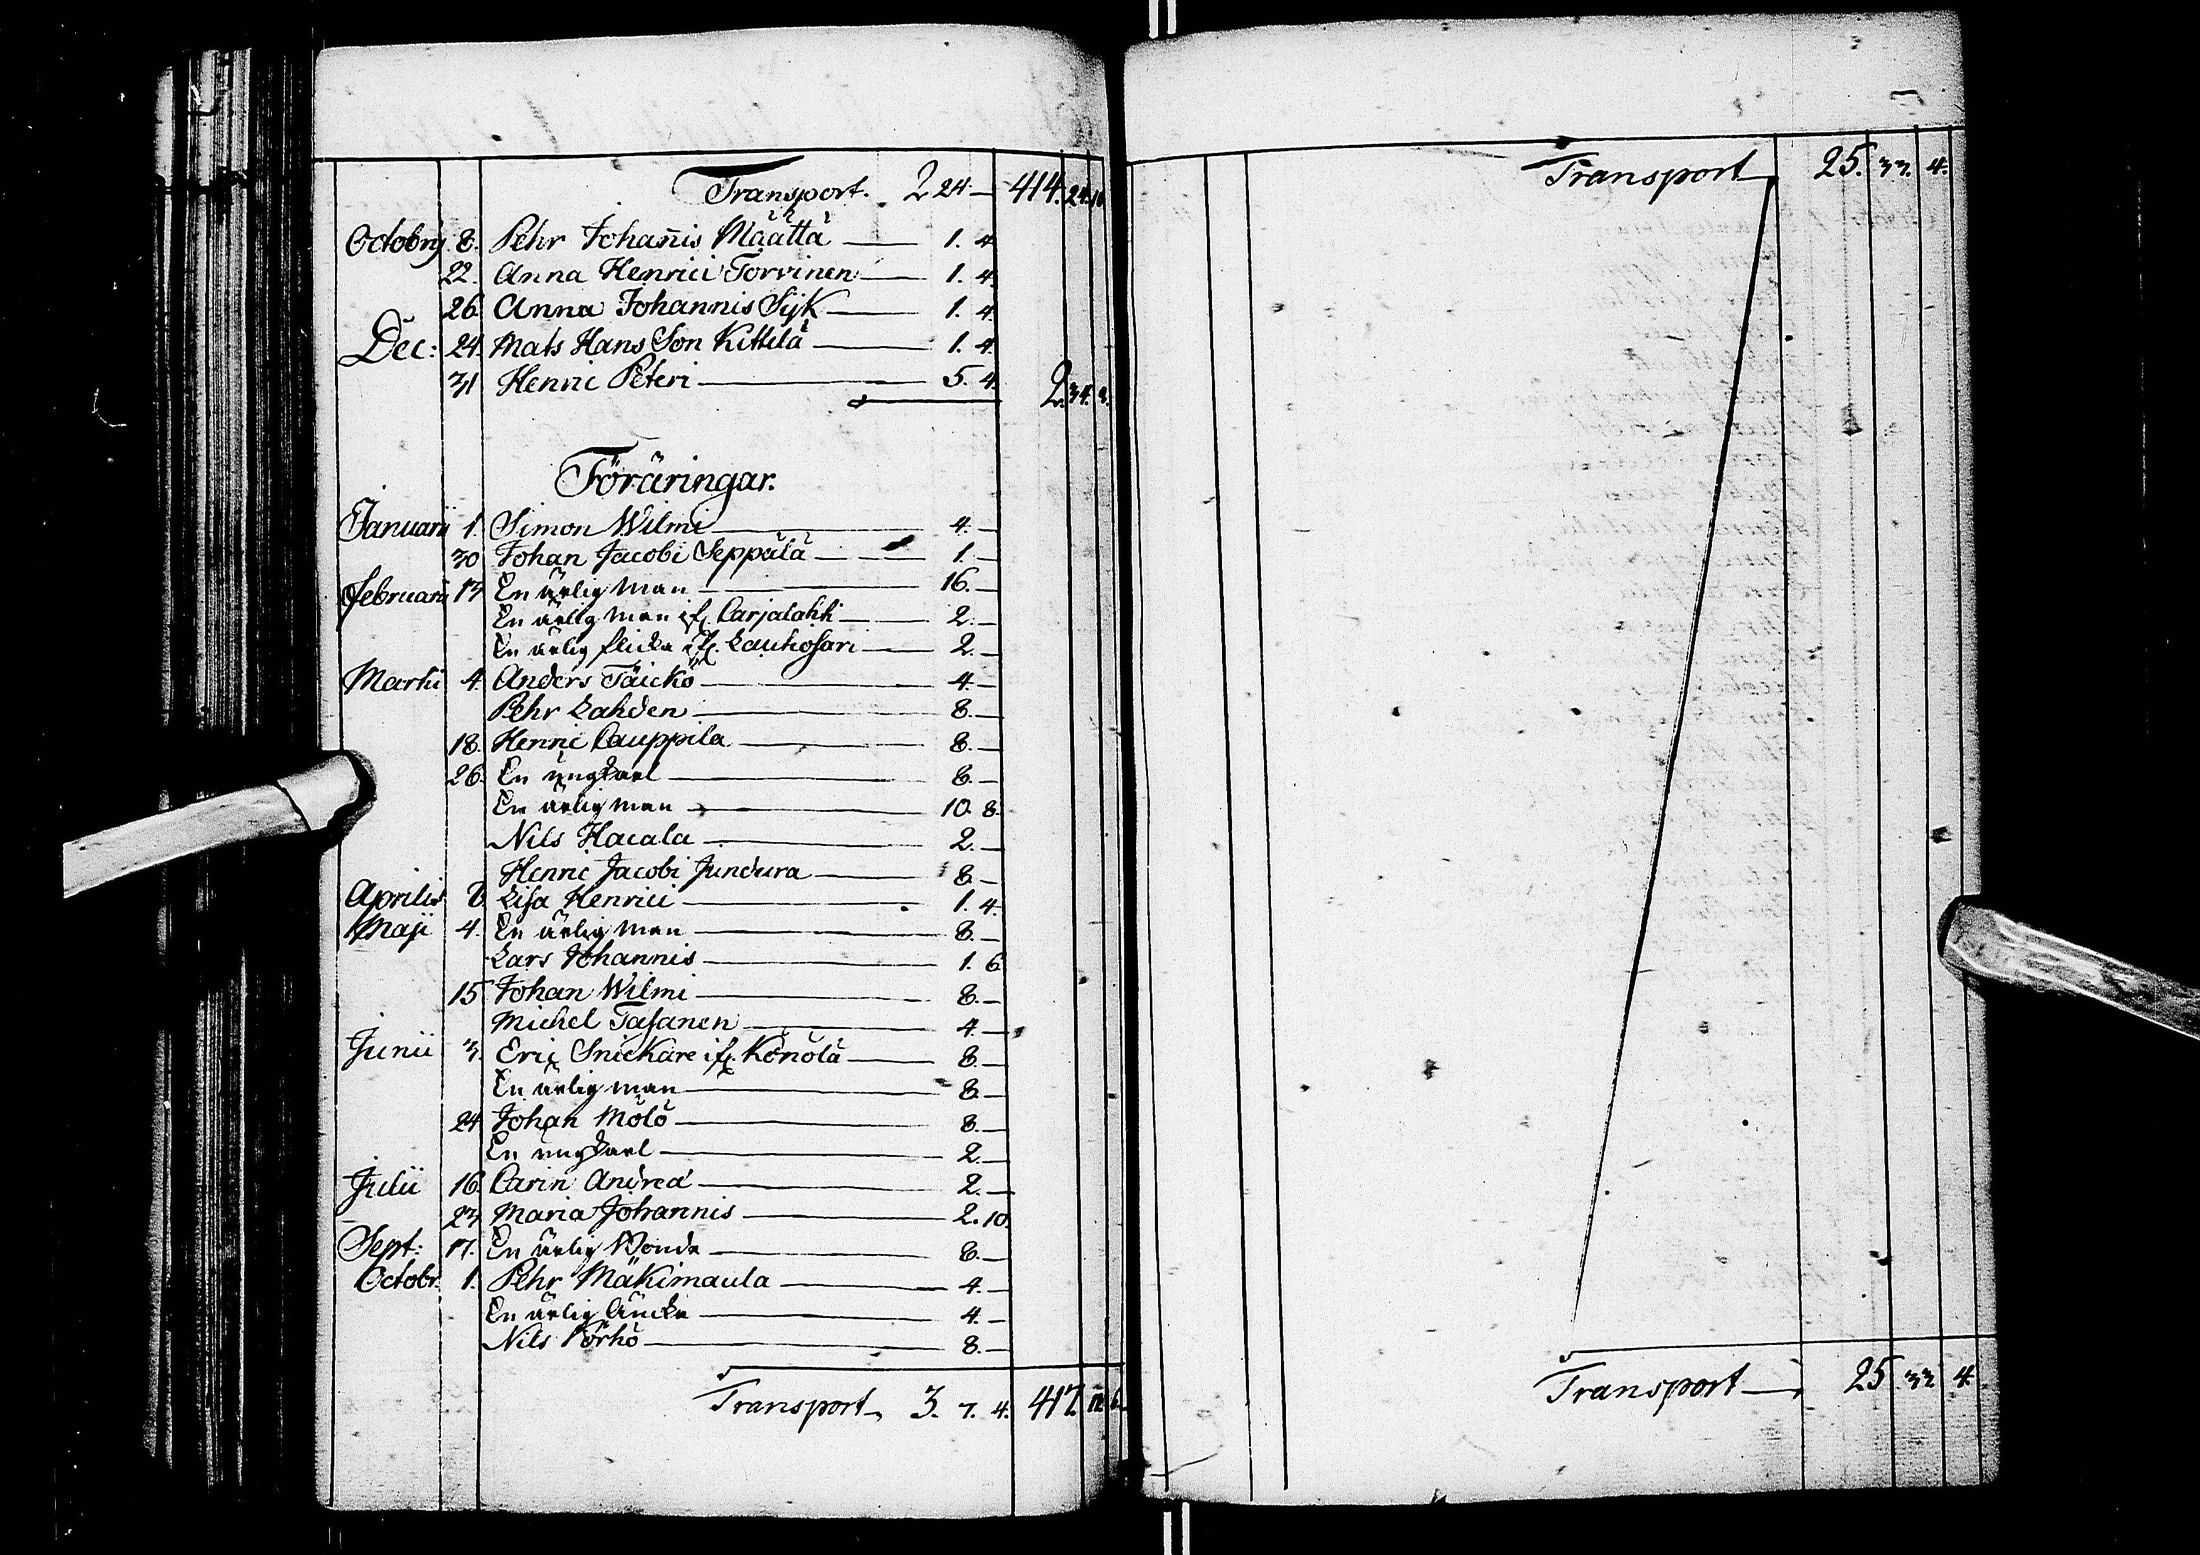 Transport. 2 24. — 414. 24. 10
Octobris 8. Pehr Johannis Määttä — 1. 4.
22. Anna Henrici Torvinen — 1. 4.
26. Anna Johannis Sijk — 1. 4.
Dec: 24. Mats Hans Son Kittilä — 1. 4.
31 Henric Peteri — 5. 4. 2. 34. 8.
Föräringar.
Januarii 1. Simon Wilmi — 4. —
30 Johan Jacobi Seppälä — 1. —
Februarii 13 En ärlig man — 16. —
En ärlig man if. Carjalahti — 2. —
En ärlig flicka if. Lauhosari — 2. —
Martii 4. Anders Täickö — 4. —
Pehr Lahden — 8. —
18. Henric Cauppila — 8. —
26. En ungkarl — 8. —
En ärlig man — 10. 8.
Nils Hacala — 2. —
Henric Jacobi Jundura — 8. —
Aprilis 8 Lisa Henrici — 1. 4.
Maji 4. En ärlig man — 8. —
Lars Johannis — 1. 6
15 Johan Wilmi — 8. —
Michel Tasanen — 4. —
Junii 3. Eric Snickare if. Könölä — 8. —
En ärlig man — 8. —
24 Johan Mölö — 8. —
En ungkarl — 2. —
Julii 16. Carin Andreæ — 2. —
23 Maria Johannis — 2. 10.
Sept: 17. En ärlig Bonde — 8. —
Octobr. 1. Pehr Mäkimaula — 4. —
En ärlig Äncka — 4. —
Nils Pörhö — 8. —
Transport 3. 7. 4. 417. 12
Transport 25. 33. 4.
Transport 25. 33. 4.